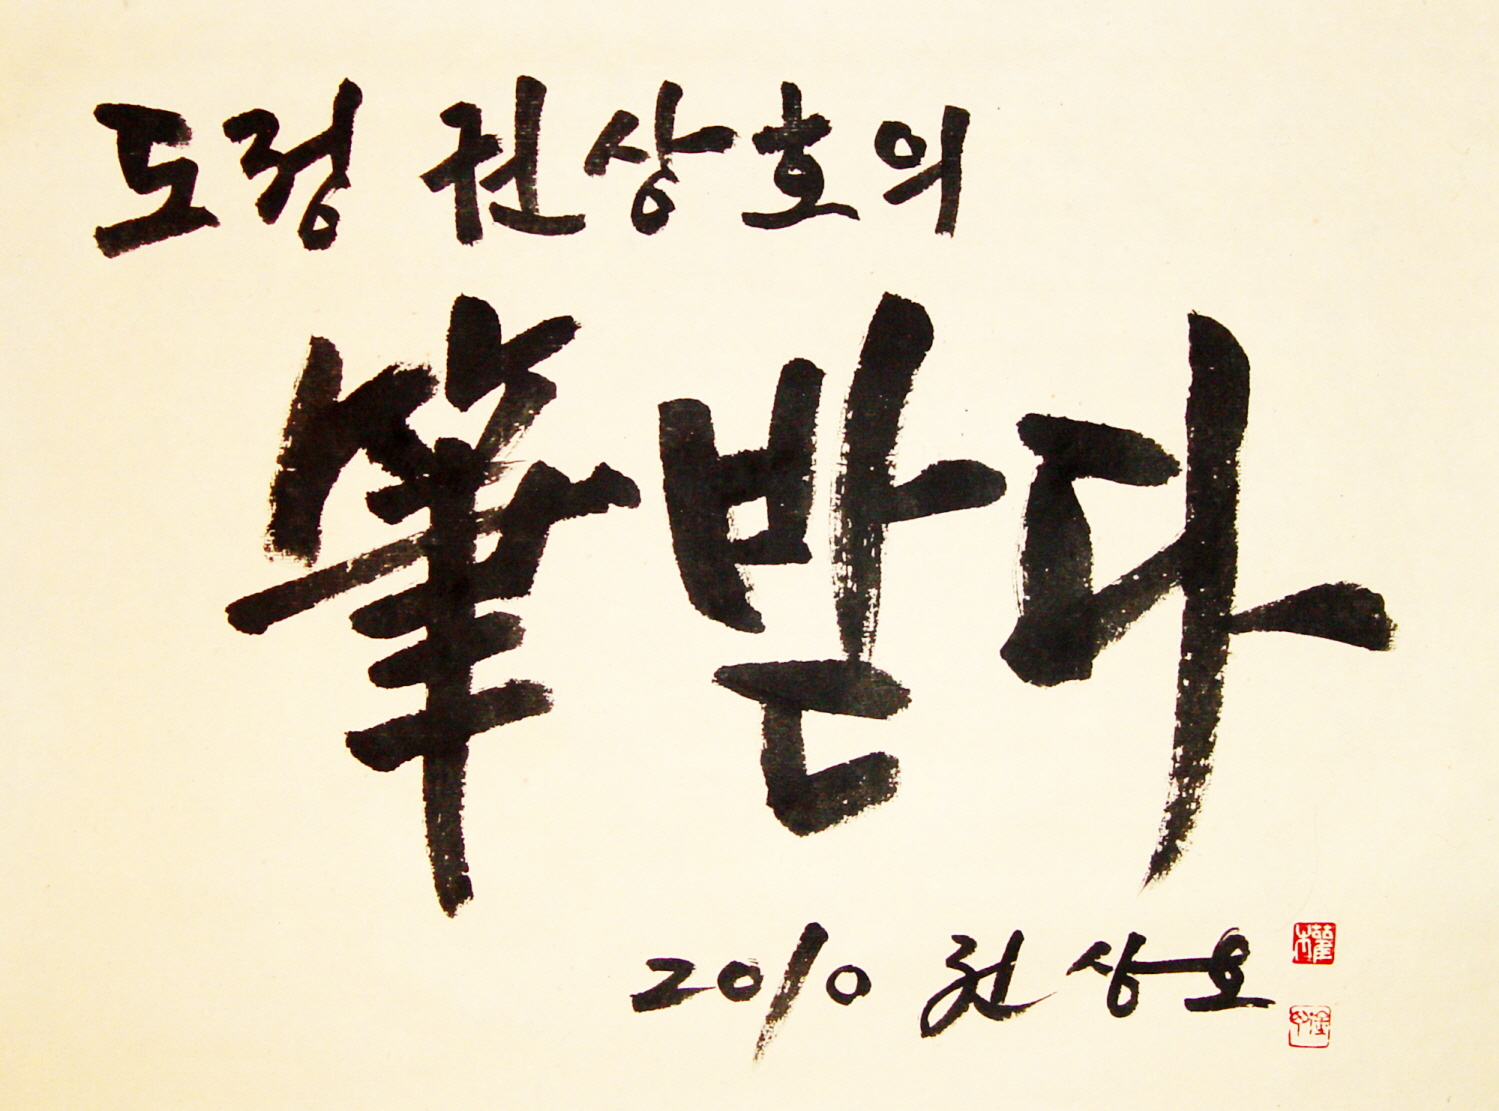 도정 권상호의
筆받다
2010 권상호
權